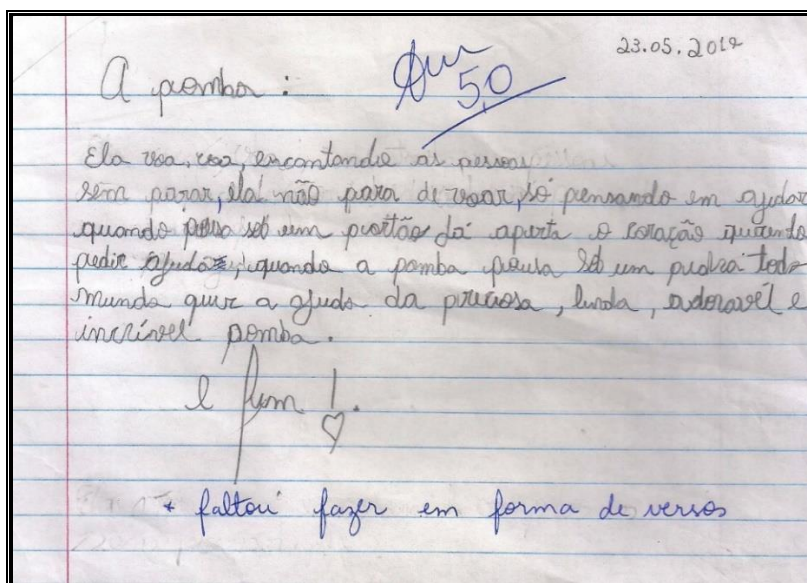 23.05.2012
A pomba:
5,0
Ela voa, voa, encantando as pessoas
sem parar, ela não para de voar, só pensando em ajudar
quando pousa sob um portão já aperta o coração querendo
pedir ajuda, quando a pomba pousa sob um pedra todo
mundo quer a ajuda da preciosa, linda, adoravél e
incrível pomba.
e fim!
* faltou fazer em forma de versos